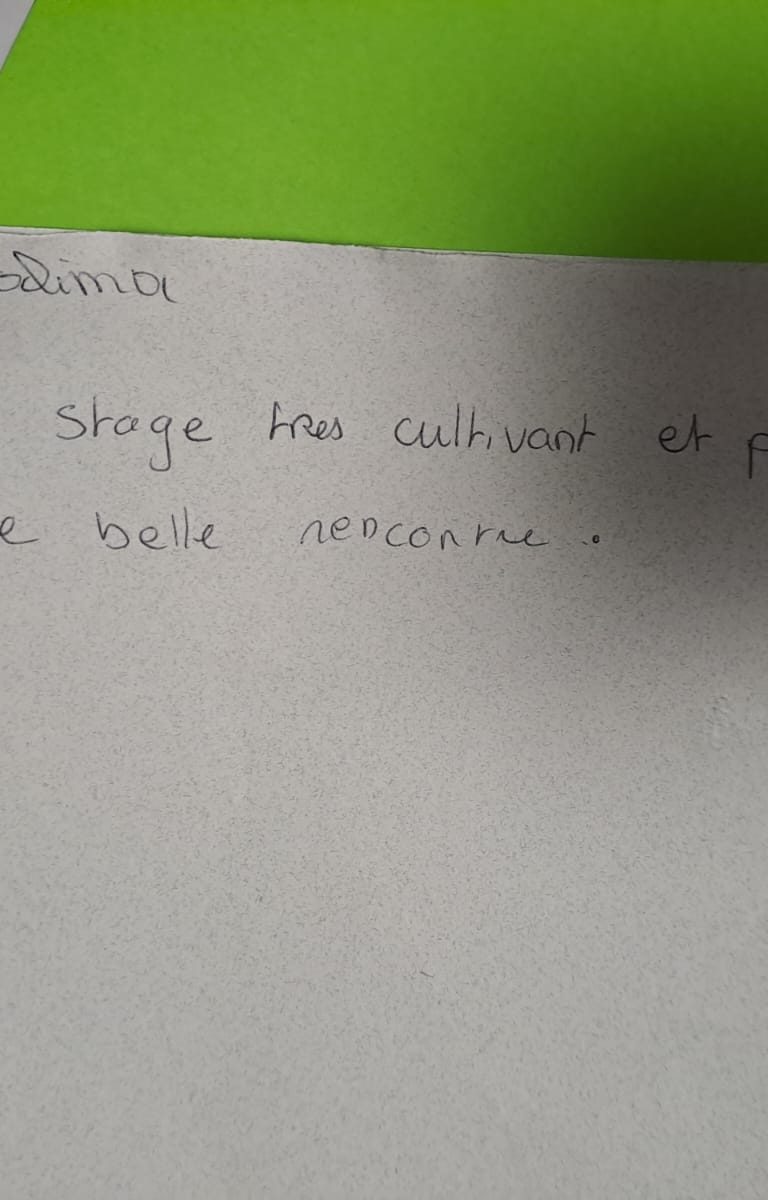 Stage tres cultivant et
e belle rencontre.